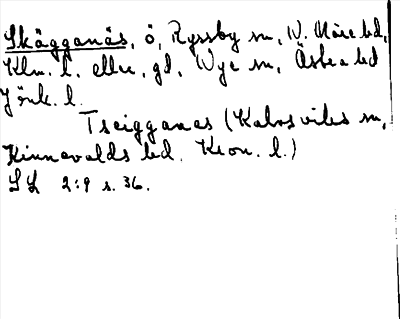 Skägganäs, ö, Ryssby sn, N. Möre hd,
Klm. l. eller, gd, Nye sn, Östra hd
Jönk. l.
Tseigganas (Kalvsviks sn,
Kinnevalds hd. Kron. l.)
SL 2:9 s. 36.